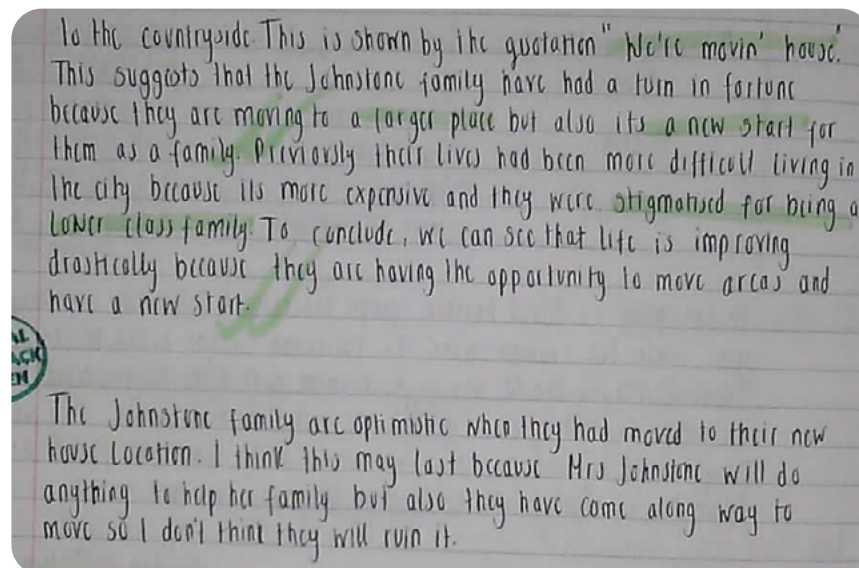 to the countryside. This is shown by the quotation " We're movin' house.'
This suggests that the Johnstone family have had a turn in fortune
because they are moving to a larger place but also its a new start for
them as a family. Previously their lives had been more difficult living in
the city because its more expensive and they were stigmatised for being a
Lower class family. To conclude, we can see that life is improving
drastically because they are having the opportunity to move areas and
have a new start.
The Johnstone family are optimistic when they had moved to their new
house location. I think this may last because Mrs Johnstone will do
anything to help her family but also they have come along way to
move so I don't think they will ruin it.